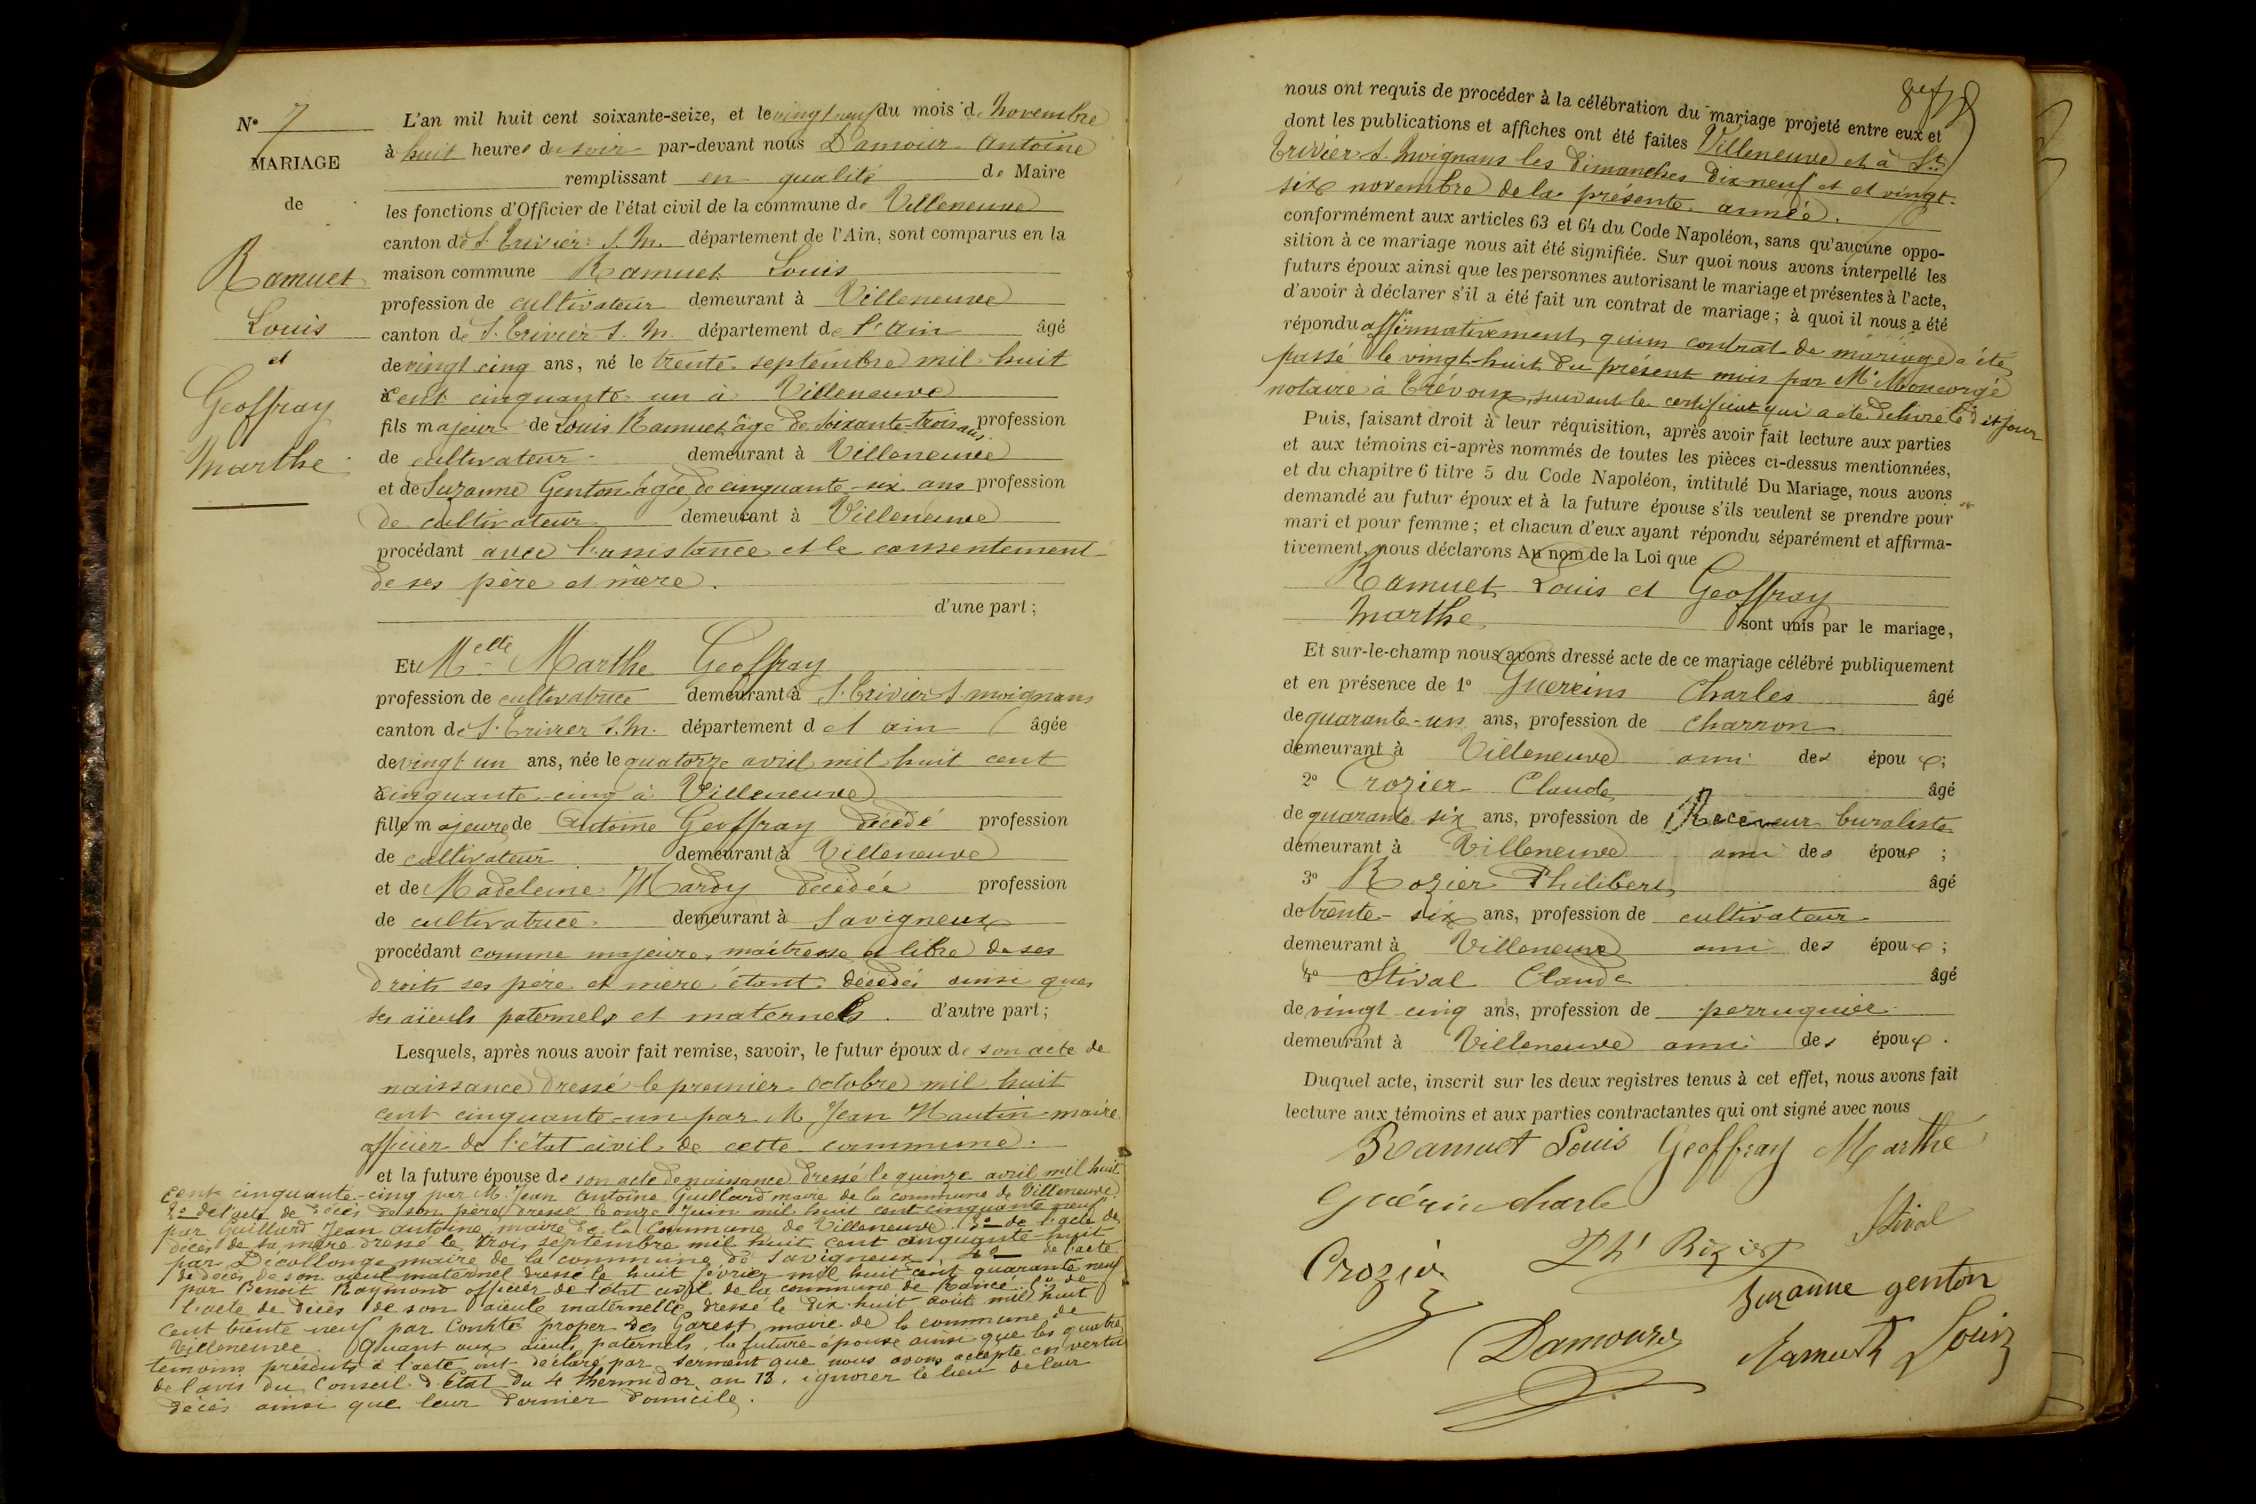 N° 7
MARIAGE
de
Ramuet
Louis
et
Geoffray
Marthe
L'an mil huit cent soixante-seize, et le vingt neuf du mois d. Novembre
à huit heures du soir par-devant nous Damour Antoine
remplissant en qualité de Maire
les fonctions d'Officier de l'état civil de la commune de Villeneuve
canton de S. Trivier S. M. département de l'Ain, sont comparus en la
maison commune Ramuet Louis
profession de cultivateur demeurant à Villeneuve
canton de S. Trivier S. M. département de l'Ain âgé
de vingt cinq ans, né le trente septembre mil huit
cent cinquante un à Villeneuve
fils majeur de Louis Ramuet âgé de soixante-trois ans profession
de cultivateur demeurant à Villeneuve
et de Suzanne Genton âgée de cinquante-six ans profession
de cultivateur demeurant à Villeneuve
procédant avec l'assistance et le consentement
de ses père et mère.
d'une part;
Et Melle Marthe Geoffray
profession de cultivatrice demeurant à S. Trivier S. moignans
canton de S. Trivier S. M. département d el ain âgée
de vingt un ans, née le quatorze avril mil huit cent
cinquante cinq à Villeneuve
fille majeure de Antoine Geoffray décédé profession
de cultivateur demeurant à Villeneuve
et de Madeleine Mardy décédée profession
de cultivatrice demeurant à Savigneux
procédant comme majeure, maitresse et libre de ses
droits ses père et mère étant décédés ainsi que
ses aïeuls paternels et maternels. d'autre part;
Lesquels, après nous avoir fait remise, savoir, le futur époux de son acte de
naissance dressé le premier octobre mil huit
cent cinquante-un par M. Jean Hautin maire
officier de l'état civil de cette commune.
et la future épouse de son acte de naissance dressé le quinze avril mil huit
cent cinquante-cinq par M. Jean Antoine Guillard maire de la commune de Villeneuve.
2° de l'acte de décès de son père dressé le onze Juin mil huit cent cinquante neuf
par Guillard Jean Antoine, maire de la Commune de Villeneuve. 3° de l'acte de
décès de sa mère dressé le trois septembre mil huit cent cinquante-huit
par Decollonge maire de la commune de Savigneux, 4° de l'acte
de décès de son aïeul maternel dressé le huit février mil huit cent quarante neuf
par Benoit Raymond officier de l'état civil de la commune de Rancé. 5° de
l'acte de décès de son aïeule maternelle dressé le dix-huit août mil huit
cent trente neuf par Conkte proper des Garest maire de la commune de
Villeneuve. Quant aux aïeuls paternels, la future épouse ainsi que les quatre
temoins présents à l'acte ont déclaré par serment que nous avons accepté en vertu
de l'avis du Conseil d'Etat du 4 thermidor an 13, ignorer le lieu de leur
décès ainsi que leur dernier domicile.
nous ont requis de procéder à la célébration du mariage projeté entre eux et
dont les publications et affiches ont été faites Villeneuve et à St.
Trivier S. Moignans les dimanches dix neuf et et vingt-
six novembre de la présente année.
conformément aux articles 63 et 64 du Code Napoléon, sans qu'aucune oppo-
sition à ce mariage nous ait été signifiée. Sur quoi nous avons interpellé les
futurs époux ainsi que les personnes autorisant le mariage et présentes à l'acte,
d'avoir à déclarer s'il a été fait un contrat de mariage; à quoi il nous a été
répondu affirmativement, qu'un contrat de mariage a été
passé le vingt-huit du présent mois par Me Moncorgé
notaire à Trévoux, suivant le certificat qui a été délivré le dit jour
Puis, faisant droit à leur réquisition, après avoir fait lecture aux parties
et aux témoins ci-après nommés de toutes les pièces ci-dessus mentionnées,
et du chapitre 6 titre 5 du Code Napoléon, intitulé Du Mariage, nous avons
demandé au futur époux et à la future épouse s'ils veulent se prendre pour
mari et pour femme; et chacun d'eux ayant répondu séparément et affirma-
tivement, nous déclarons Au nom de la Loi que
Ramuet Louis et Geoffray
Marthe sont unis par le mariage,
Et sur-le-champ nous avons dressé acte de ce mariage célébré publiquement
et en présence de 1° Guereins Charles âgé
de quarante-un ans, profession de charron
demeurant à Villeneuve ami des époux;
2° Crozier Claude âgé
de quarante six ans, profession de Receveur buraliste
demeurant à Villeneuve ami des époux;
3° Rozier Philibert âgé
de trente-six ans, profession de cultivateur
demeurant à Villeneuve ami des époux;
4° Stival Claude âgé
de vingt cinq ans, profession de perruquier
demeurant à Villeneuve ami des époux.
Duquel acte, inscrit sur les deux registres tenus à cet effet, nous avons fait
lecture aux témoins et aux parties contractantes qui ont signé avec nous
Ramuet Louis Geoffray Marthe
Guérin charle
Stival
Crozier
Suzanne genton
Damour
Ramuet Louis